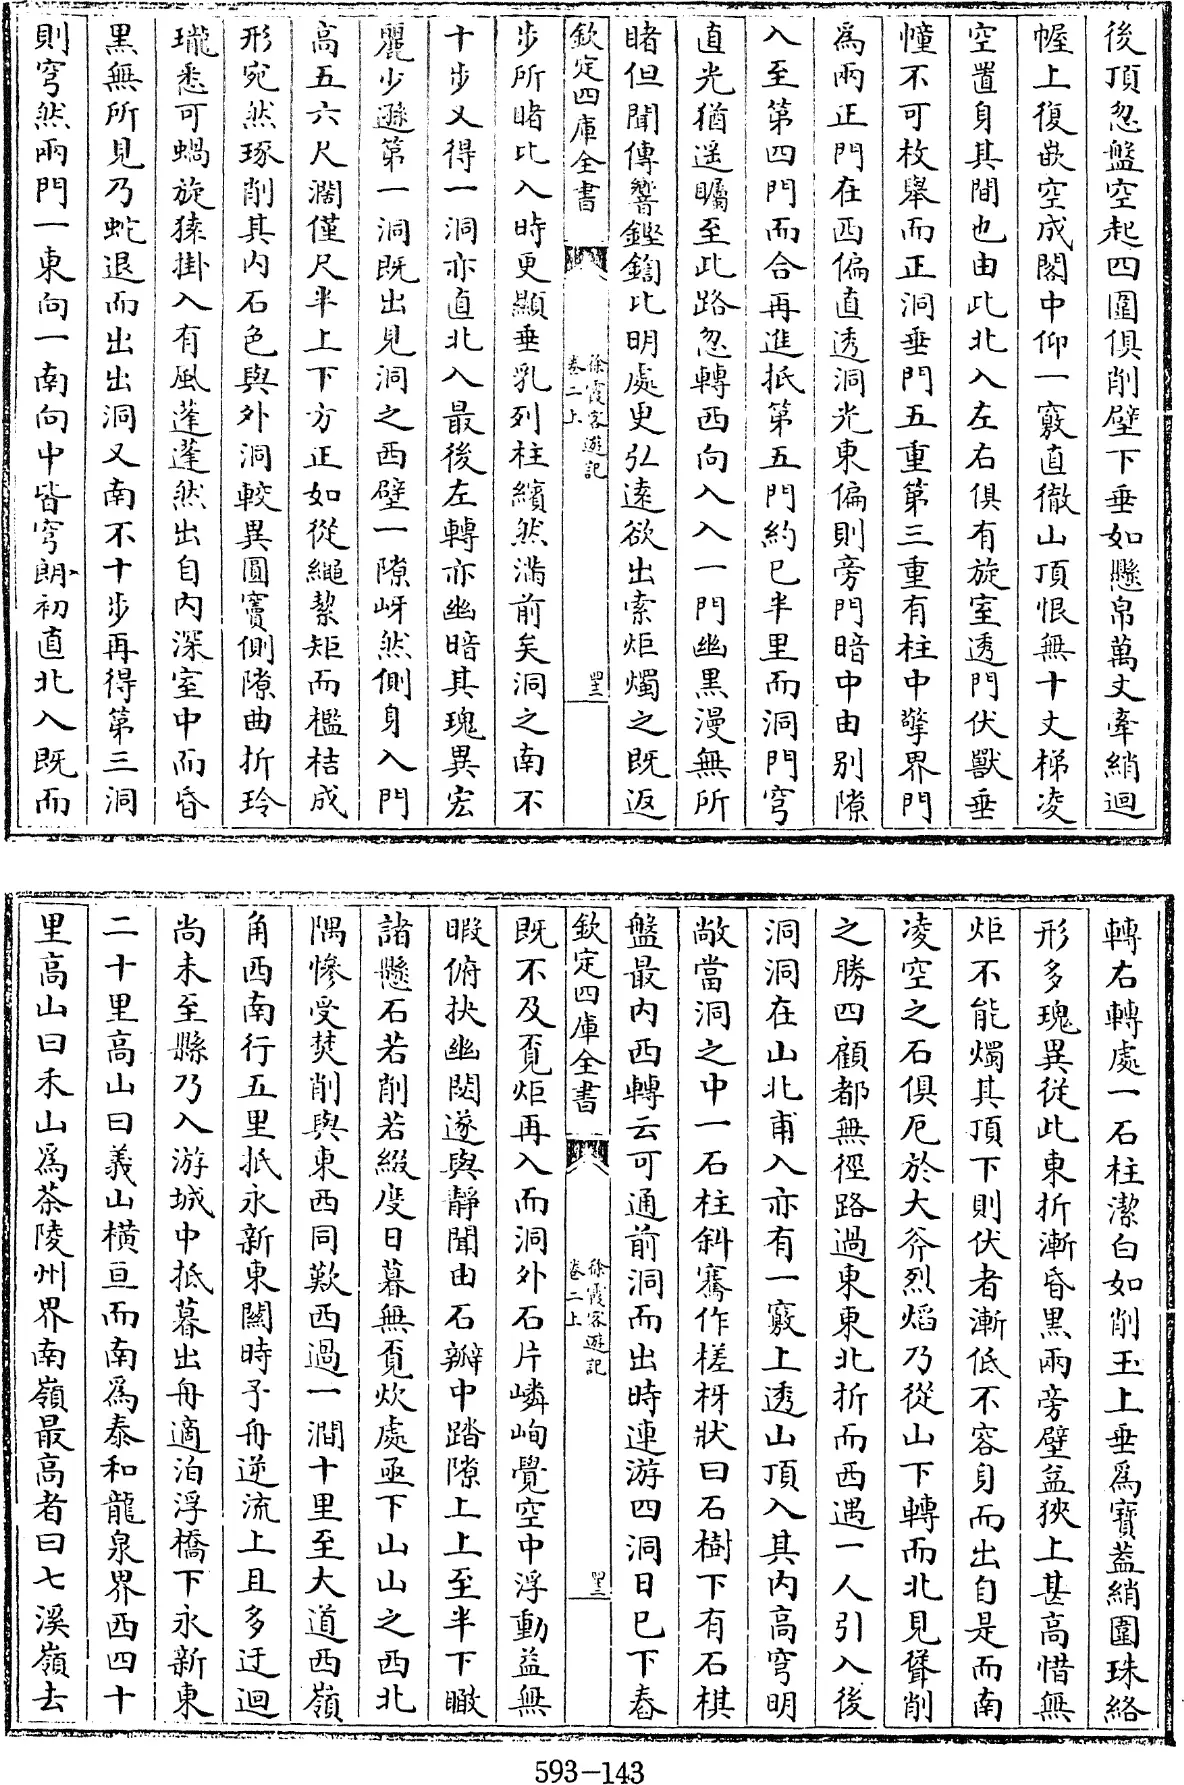 後頂忽盤空起四圍俱削壁下垂如懸帛萬丈牽綃迴
幄上復嵌空成閣中仰一竅直徹山頂恨無十丈梯凌
空置身其間也由此北入左右俱有旋室透門伏獸垂
幢不可枚舉而正洞垂門五重第三重有柱中擎界門
為兩正門在西偏直透洞光東偏則旁門暗中由別隙
入至第四門而合再進抵第五門約已半里而洞門穹
直光猶遥矚至此路忽轉西向入入一門幽黒漫無所
睹但聞傳響鏗鍧比明處更弘逺欲出索炬燭之既返
欽定四庫全書
徐霞客遊記
卷二上
四三
步所睹比入時更顯垂乳列柱繽然滿前矣洞之南不
十步又得一洞亦直北入最後左轉亦幽暗其瑰異宏
麗少遜第一洞既出見洞之西壁一隙岈然側身入門
高五六尺濶僅尺半上下方正如從繩挈矩而檻桔成
形宛然琢削其内石色與外洞較異圓竇側隙曲折玲
瓏悉可蝸旋猿掛入有風蓬蓬然出自内深室中而昏
黒無所見乃蛇退而出出洞又南不十步再得第三洞
則穹然兩門一東向一南向中皆穹朗初直北入既而
轉右轉處一石柱潔白如削玉上垂為寳葢綃圍珠絡
形多瑰異從此東折漸昏黒兩旁壁益狹上甚高惜無
炬不能燭其頂下則伏者漸低不容身而出自是而南
凌空之石俱厄於大斧烈焰乃從山下轉而北見聳削
之勝四顧都無徑路過東東北折而西遇一人引入後
洞洞在山北甫入亦有一竅上透山頂入其内高穹明
敞當洞之中一石柱斜騫作槎枒狀曰石樹下有石棋
盤最内西轉云可通前洞而出時連游四洞日已下舂
欽定四庫全書
徐霞客遊記
卷二上
四三
既不及覔炬再入而洞外石片嶙峋覺空中浮動益無
暇俯抉幽閟遂與靜聞由石瓣中踏隙上上至半下瞰
諸懸石若削若綴度日暮無覔炊處亟下山山之西北
隅慘受焚削與東西同歎西過一澗十里至大道西嶺
角西南行五里抵永新東關時予舟逆流上且多迂迴
尚未至縣乃入游城中抵暮出舟適泊浮橋下永新東
二十里高山曰義山横亘而南為泰和龍泉界西四十
里高山曰禾山為茶陵州界南嶺最高者曰七溪嶺去
593-143